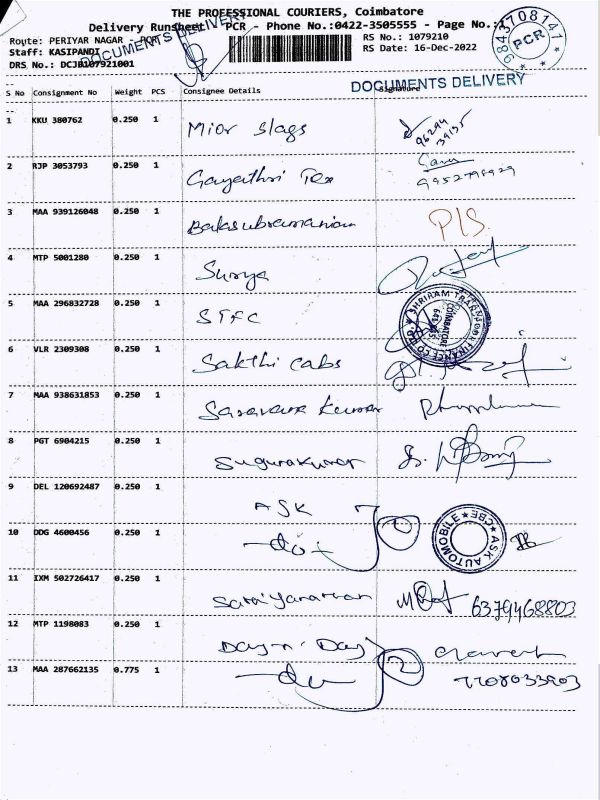 THE PROFESSIONAL COURIERS, Coimbatore
Delivery Runsheet PCR - Phone No.:0422-3505555 - Page No.:1
Route: PERIYAR NAGAR -
RS No.: 1079210
Staff: KASIPANDI
RS Date: 16-Dec-2022
DRS No.: DCJB107921001
DOCUMENTS DELIVERY
9843708141
PCR
DOCUMENTS DELIVERY
S No Consignment No Weight PCS Consignee Details Signature
1 KKU 380762 0.250 1 Mior slags
96294
2 RJP 3053793 0.250 1 Gayathri Tex
3 MAA 939126048 0.250 1 Balasubramaniam P/S.
4 MTP 5001280 0.250 1 Surya
5 MAA 296832728 0.250 1 STFC
SHRIRAM TRANSPORT FINANCE CO LTD
COIMBATORE
6 VLR 2309308 0.250 1 Sakthi cabs
7 MAA 938631853 0.250 1 Saravana Kumar
8 PGT 6904215 0.250 1 Sugunakumar
9 DEL 120692487 0.250 1 ASK
ASK AUTOMOBILE CBE
10 DDG 4600456 0.250 1 -do-
11 IXM 502726417 0.250 1 6379468803
12 MTP 1198083 0.250 1 Day n Day
13 MAA 287662135 0.775 1 -do-
7708033903